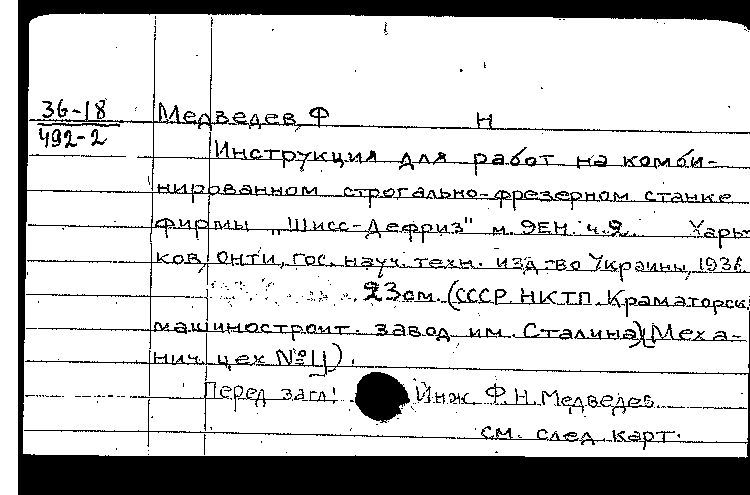 36-18
492-2
Медведев, Ф Н
Инструкция для работ на комби-
нированном строгально-фрезерном станке
фирмы „Шисс-Дефриз" м. ЭЕН. ч.2. Харь-
ков, ОНТИ, гос. науч. техн. изд-во Украины, 1936.
23 см. (СССР. НКТП. Краматорск.
машиностроит. завод им. Сталина)(Меха-
нич. цех №1).
Перед загл: Инж. Ф.Н. Медведев.
см. след. карт.